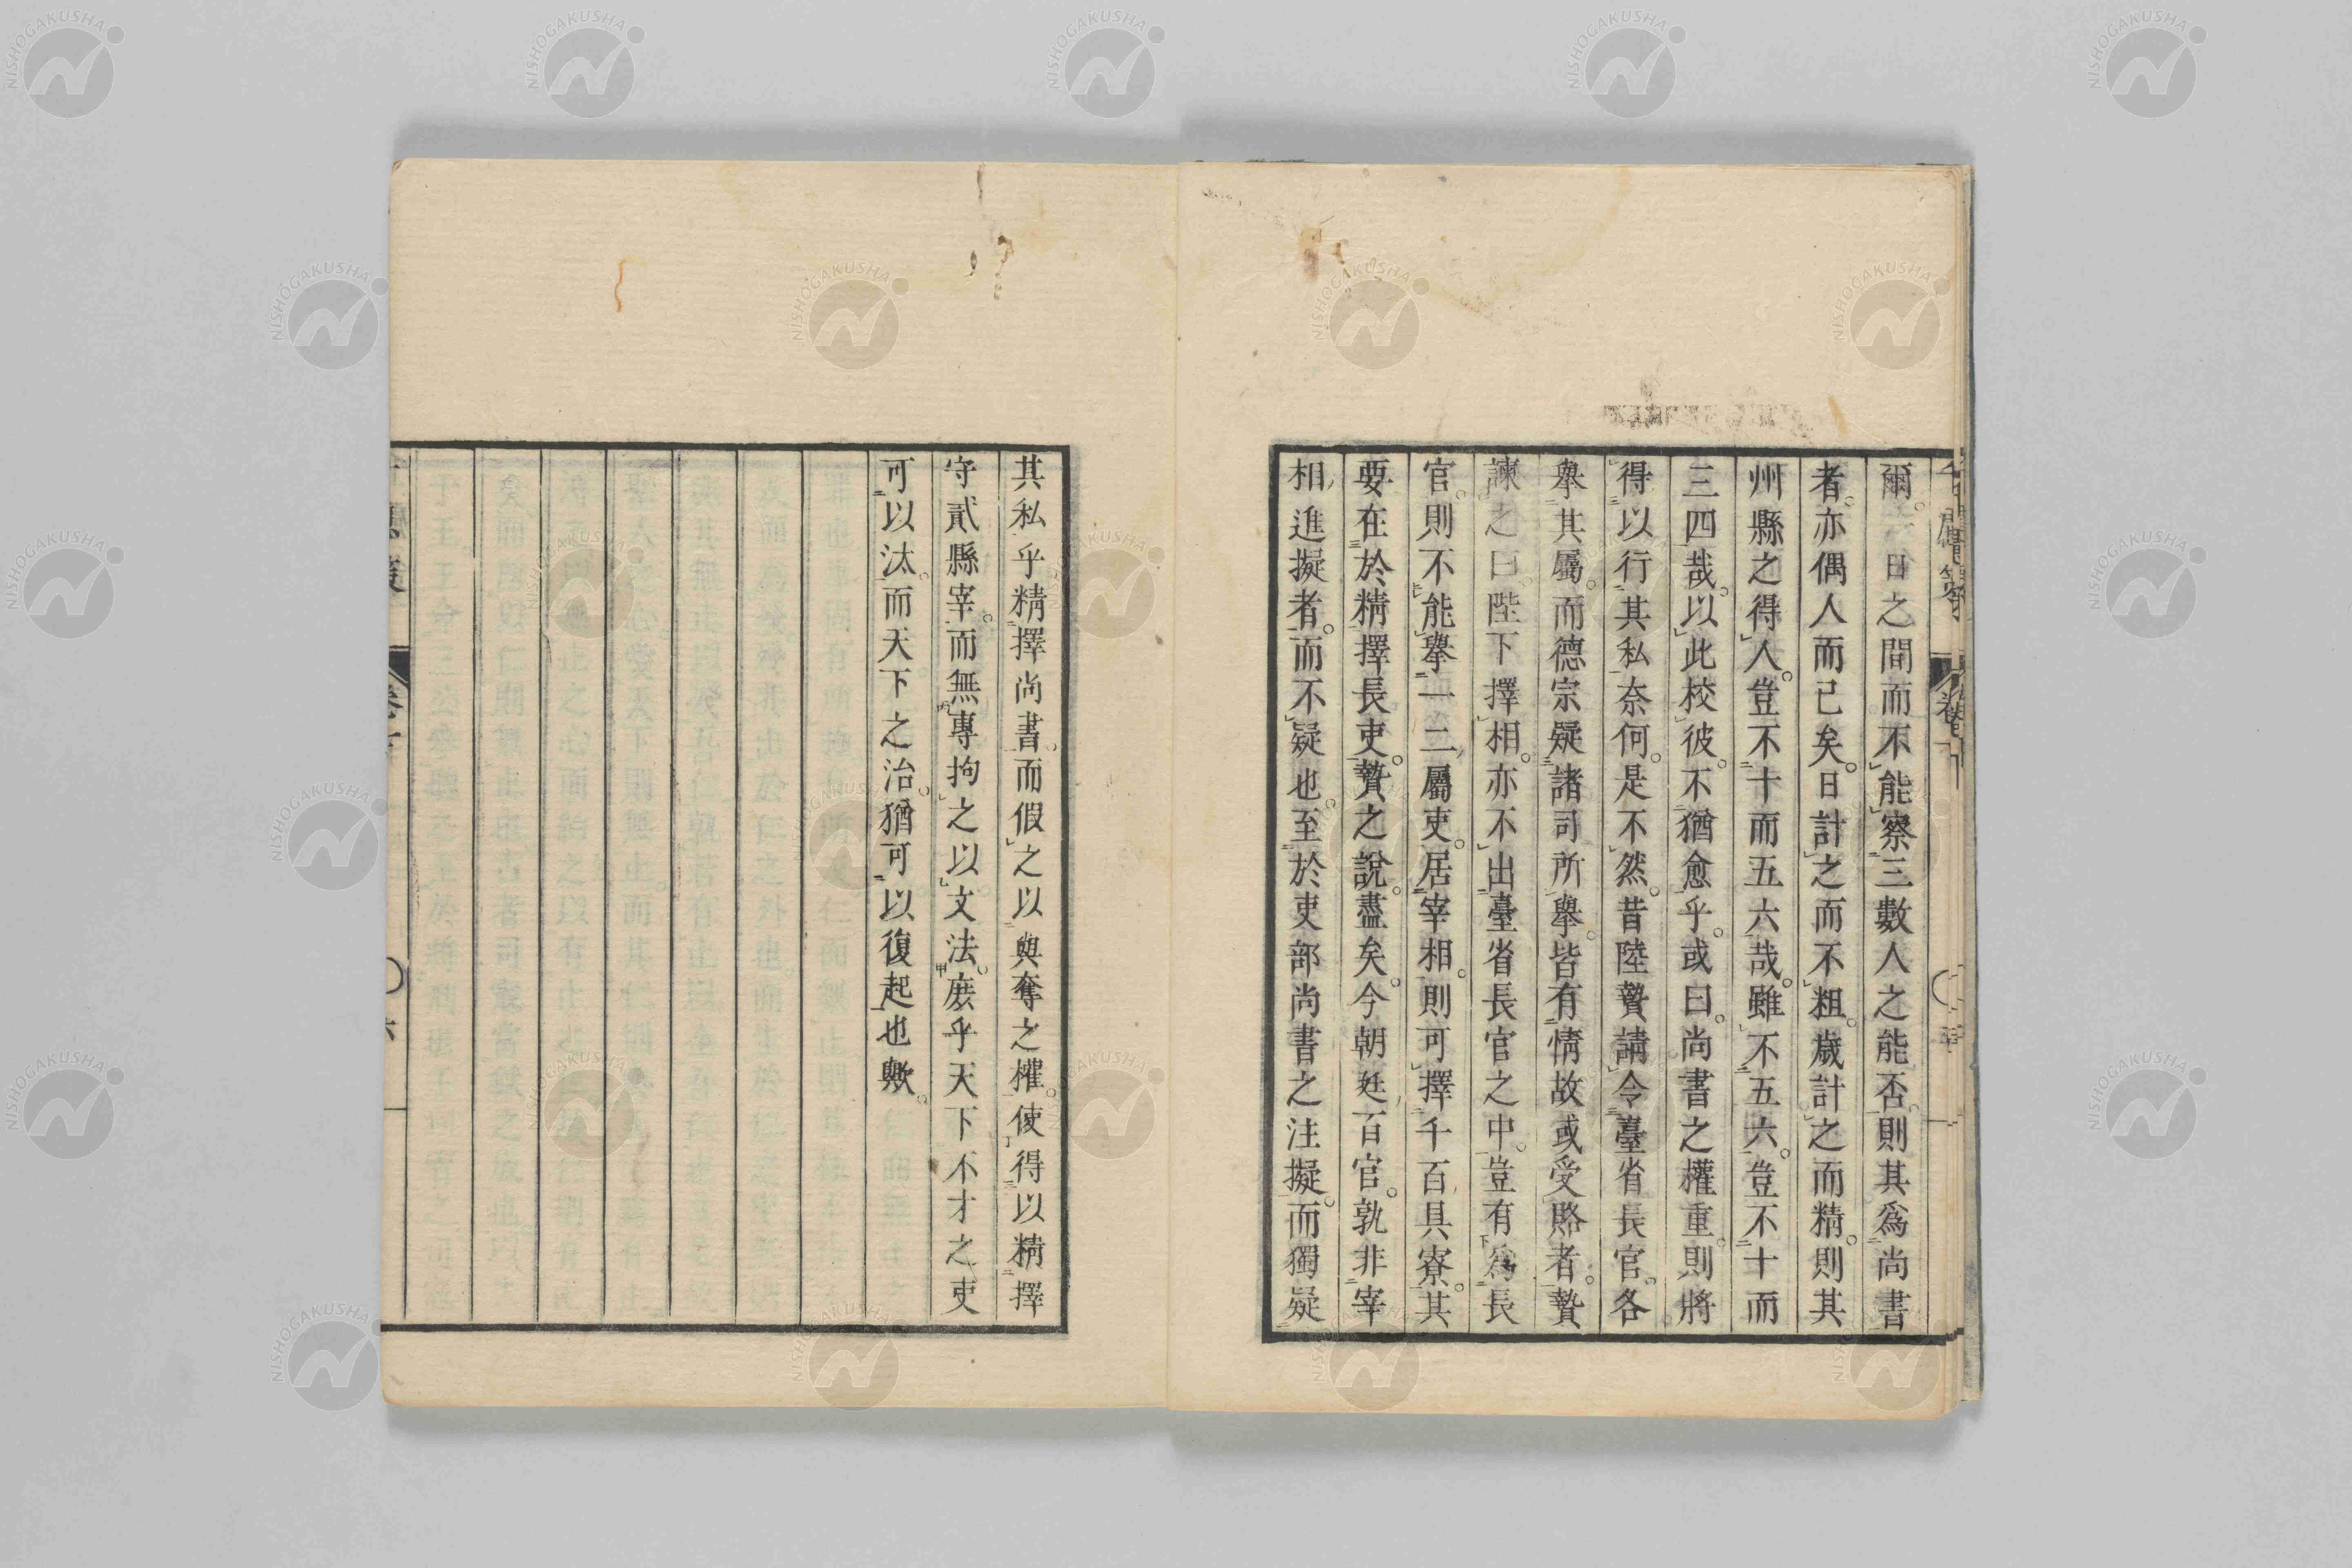 爾。一日之間而不能察三數人之能否。則其爲尚書
者。亦偶人而已矣。日計之而不粗。歲計之而精。則其
州縣之得人。豈不十而五六哉。雖不五六。豈不十而
三四哉。以此校彼。不猶愈乎。或曰。尚書之權重。則將
得以行其私奈何。是不然。昔陸贄請令臺省長官。各
舉其屬。而德宗疑諸司所舉。皆有情故或受賂者。贄
諫之曰。陛下擇相。亦不出臺省長官之中。豈有爲長
官。則不能舉一二屬吏。居宰相。則可擇千百具寮。其
要在於精擇長吏。贄之說盡矣。今朝廷百官。孰非宰
相進擬者。而不疑也。至於吏部尚書之注擬。而獨疑
其私乎。精擇尚書。而假之以與奪之權。使得以精擇
守貳縣宰。而無專拘之以文法。庶乎天下不才之吏
可以汰。而天下之治。猶可以復起也歟。
NISHOGAKUSHA